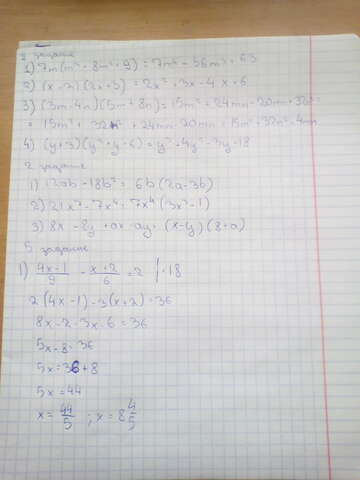 1 задание
1) 7m(m³ - 8m² + 9) = 7m⁴ - 56m³ + 63
2) (x - 2)(2x + 3) = 2x² + 3x - 4x + 6
3) (3m - 4n)(5m + 8n) = 15m² + 24mn - 20mn + 32n² =
= 15m² + 32n² + 24mn - 20mn = 15m² + 32n² - 4mn
4) (y + 3)(y² + y - 6) = y³ + 4y² - 3y - 18
2 задание
1) 12ab - 18b² = 6b(2a - 3b)
2) 21x⁷ - 7x⁴ = 7x⁴(3x³ - 1)
3) 8x - 8y + ax - ay = (x - y)(8 + a)
5 задание
1) (4x - 1)/9 - (x + 2)/6 = 2 | · 18
2(4x - 1) - 3(x + 2) = 36
8x - 2 - 3x - 6 = 36
5x - 8 = 36
5x = 36 + 8
5x = 44
x = 44/5 ; x = 8 4/5